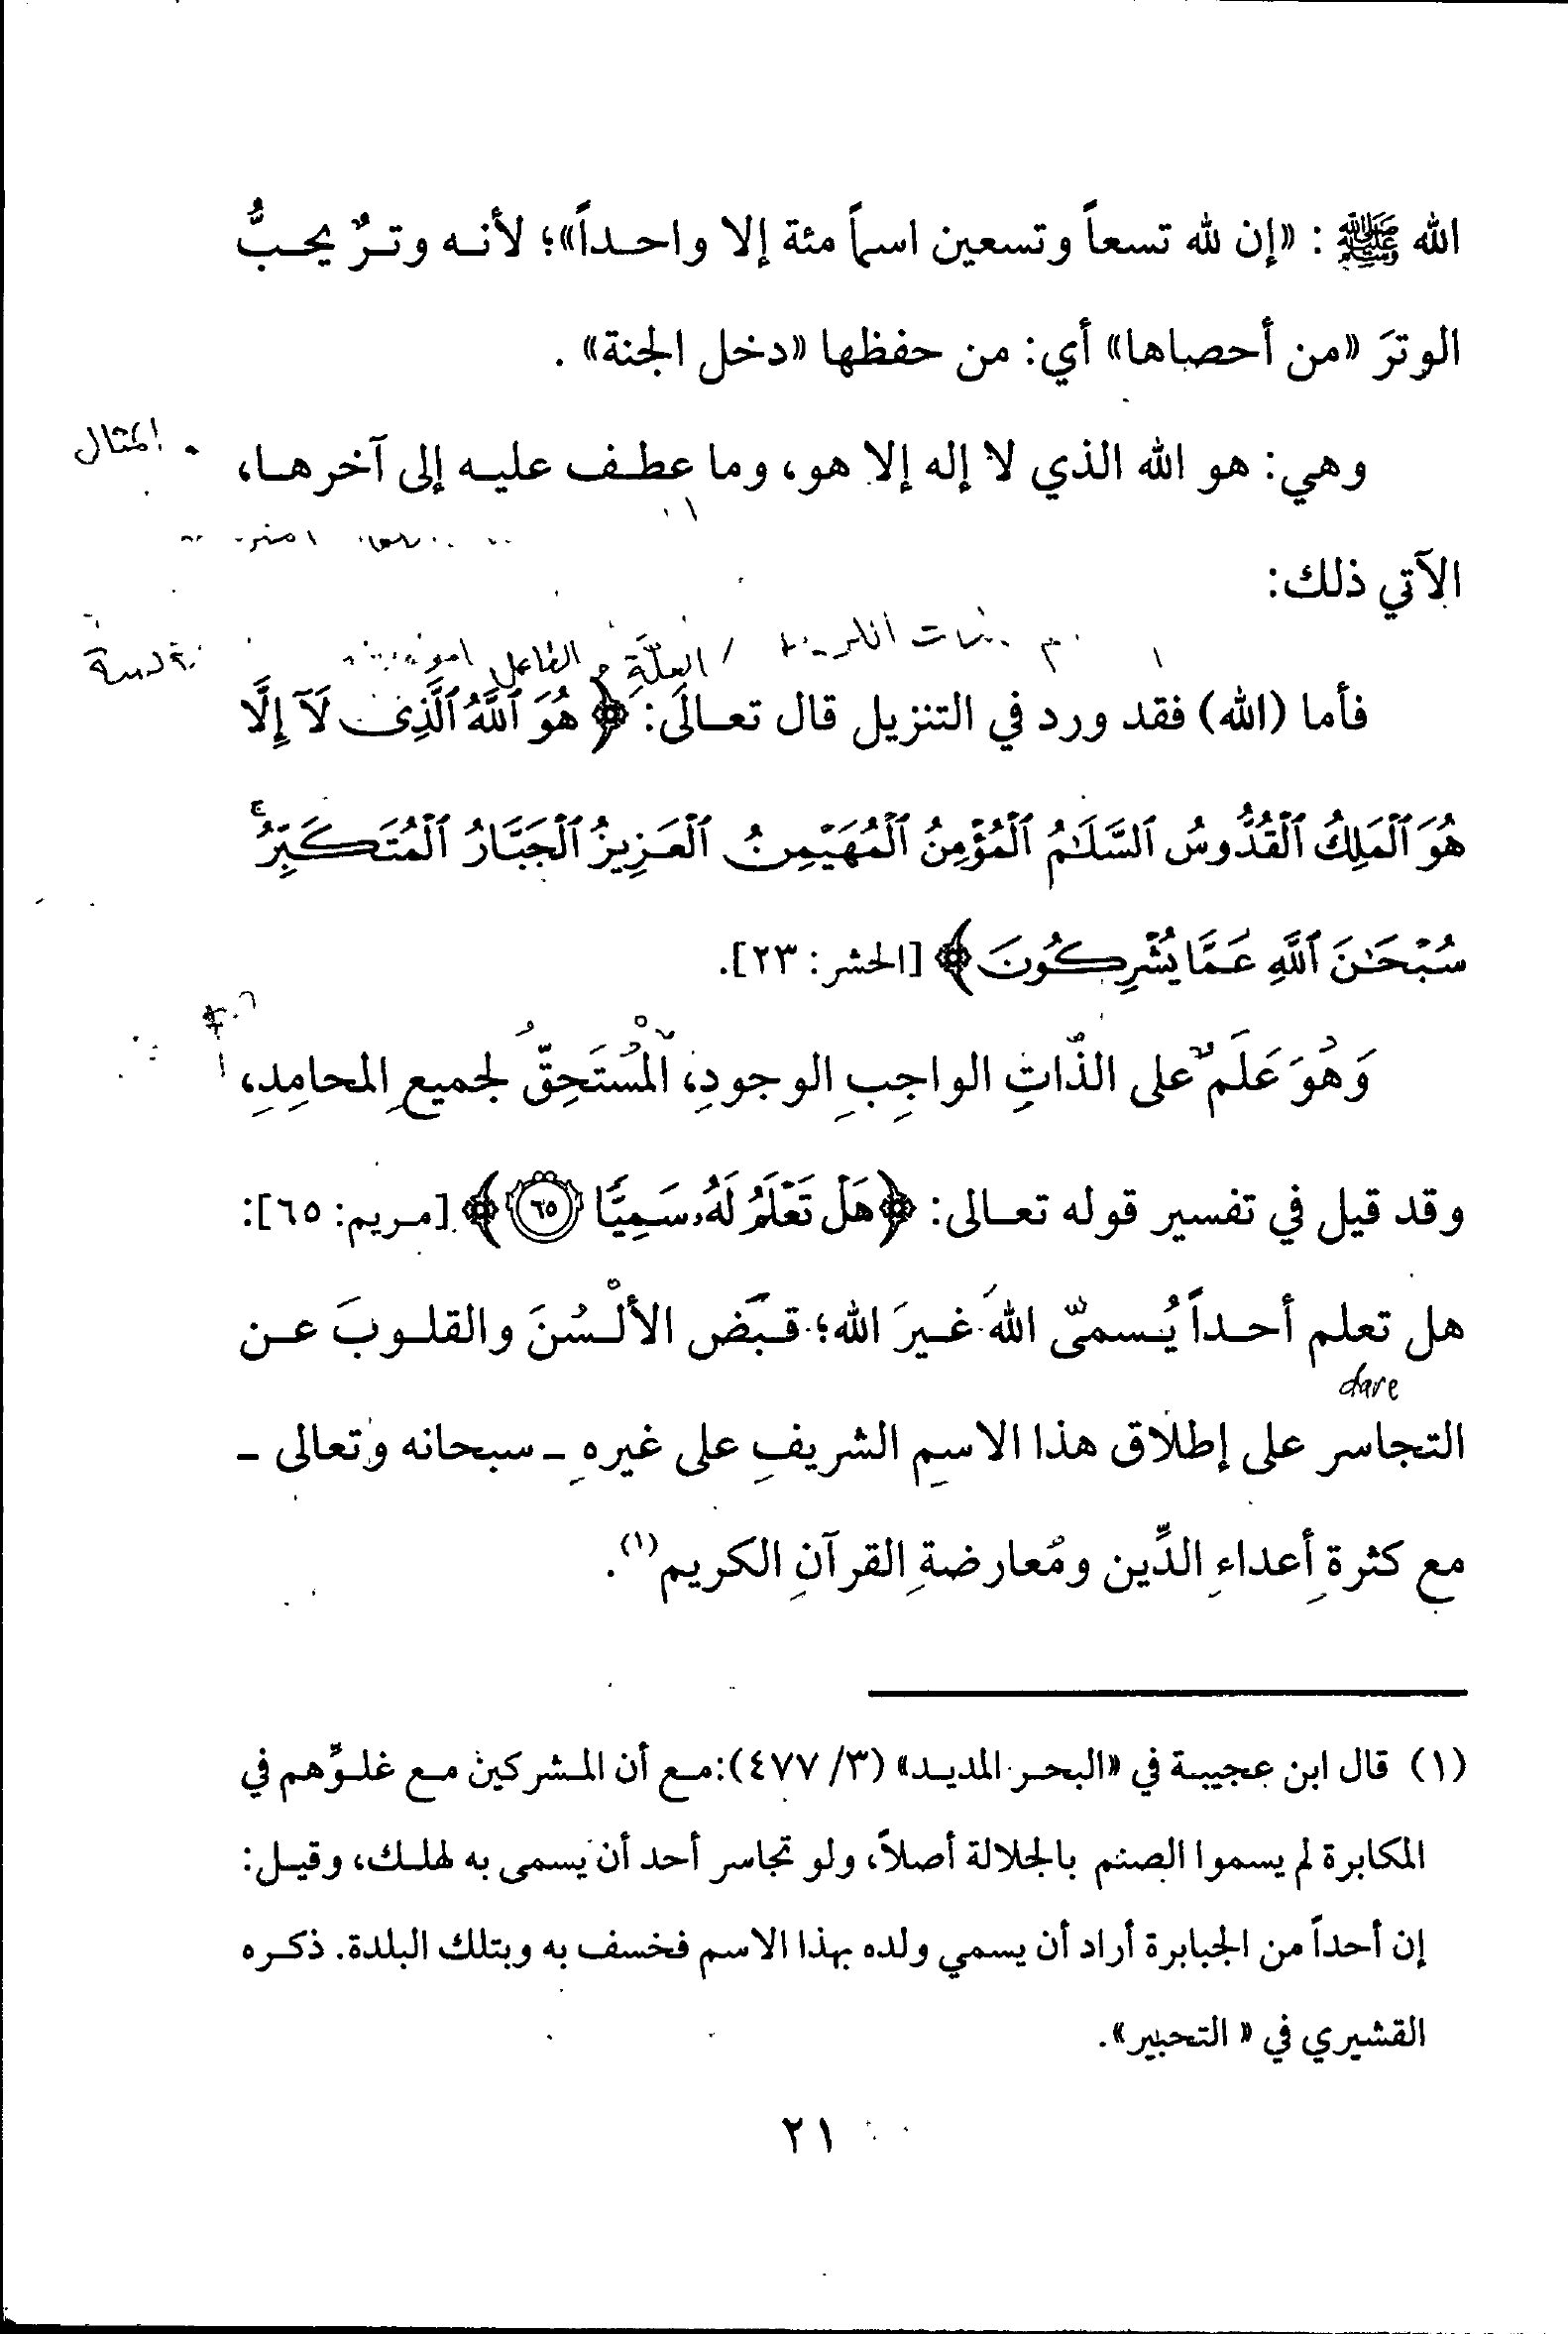 الله ﷺ : «إن لله تسعاً وتسعين اسماً مئة إلا واحداً»؛ لأنه وترٌ يحبُّ
الوترَ «من أحصاها» أي: من حفظها «دخل الجنة» .
المثال
وهي: هو الله الذي لا إله إلا هو، وما عطف عليه إلى آخرها،
الآتي ذلك:
العلّة الفاعل
فأما (الله) فقد ورد في التنزيل قال تعالى: ﴿ هُوَ ٱللَّهُ ٱلَّذِى لَآ إِلَّا
هُوَ ٱلْمَلِكُ ٱلْقُدُّوسُ ٱلسَّلَـٰمُ ٱلْمُؤْمِنُ ٱلْمُهَيْمِنُ ٱلْعَزِيزُ ٱلْجَبَّارُ ٱلْمُتَكَبِّرُ ۚ
سُبْحَـٰنَ ٱللَّهِ عَمَّا يُشْرِكُونَ ﴾ [الحشر: ٢٣].
وَهُوَ عَلَمٌ على الذّاتِ الواجِبِ الوجودِ، المْسُتَحِقّ لجميعِ المحامِدِ،
وقد قيل في تفسير قوله تعالى: ﴿هَلْ تَعْلَمُ لَهُۥ سَمِيًّا ٦٥﴾ [مريم: ٦٥]:
هل تعلم أحداً يُسمىّ اللهَ غيرَ الله؛ قبَّض الألْسُنَ والقلوبَ عن
dare
التجاسر على إطلاق هذا الاسمِ الشريفِ على غيرهِ ـ سبحانه وتعالى ـ
مع كثرةِ أعداءِ الدِّين ومُعارضةِ القرآنِ الكريم(١).
(١) قال ابن عجيبة في «البحر المديد» (٣/ ٤٧٧):مع أن المشركين مع غلوِّهم في
المكابرة لم يسموا الصنم بالجلالة أصلاً، ولو تجاسر أحد أن يسمى به لهلك، وقيل:
إن أحداً من الجبابرة أراد أن يسمي ولده بهذا الاسم فخسف به وبتلك البلدة. ذكره
القشيري في « التحبير».
٢١